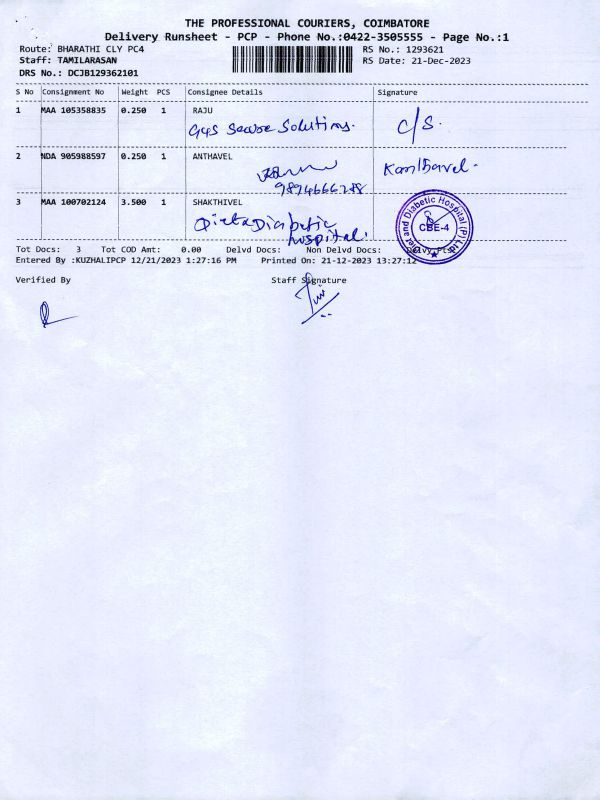 THE PROFESSIONAL COURIERS, COIMBATORE
Delivery Runsheet - PCP - Phone No.:0422-3505555 - Page No.:1
Route: BHARATHI CLY PC4 RS No.: 1293621
Staff: TAMILARASAN RS Date: 21-Dec-2023
DRS No.: DCJB129362101
S No Consignment No Weight PCS Consignee Details Signature
1 MAA 105358835 0.250 1 RAJU
G4S Secure Solutions. C/S.
2 NDA 905988597 0.250 1 ANTHAVEL
9894666288
3 MAA 100702124 3.500 1 SHAKTHIVEL
Diabetic
hospital.
Diabetic Hospital (P) Ltd
CBE-4
Tot Docs: 3 Tot COD Amt: 0.00 Delvd Docs: Non Delvd Docs:
Entered By :KUZHALIPCP 12/21/2023 1:27:16 PM Printed On: 21-12-2023 13:27:12
Verified By Staff Signature